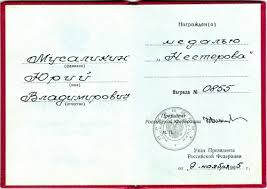 Мусалимин
(фамилия)
Юрий
(имя)
Владимирович
(отчество)
Награжден(а)
медалью
„Нестерова"
Награда № 0855
Президент
Российской Федерации
М. П.
Указ Президента
Российской Федерации
от 9 ноября